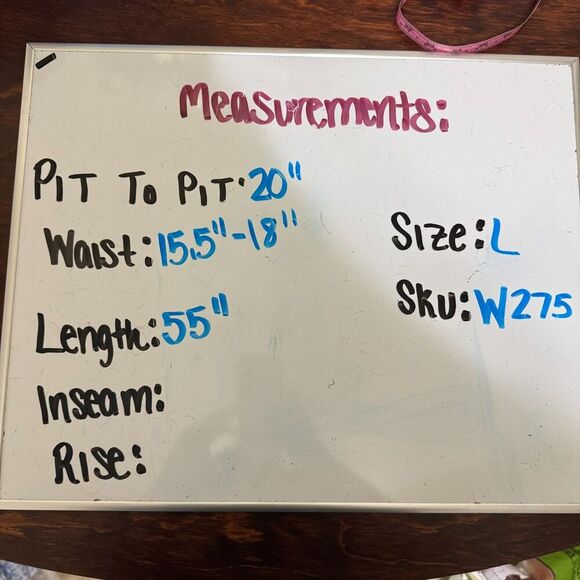 Measurements:
PIT TO PIT: 20"
Waist: 15.5"-18"
Size: L
Sku: W275
Length: 55"
Inseam:
Rise: